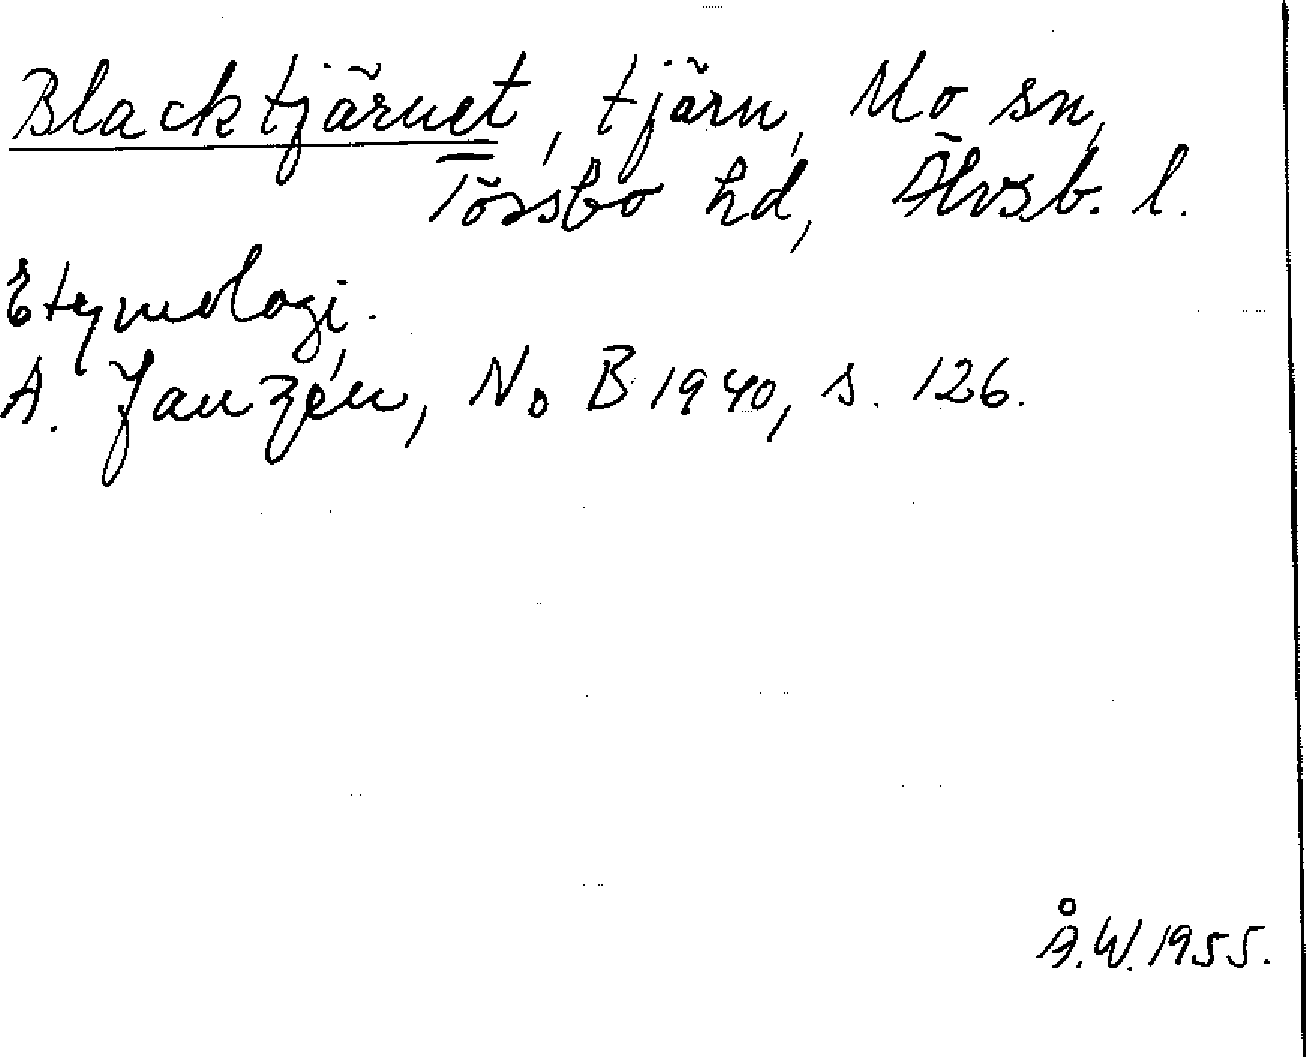 Blacktjärnet, tjärn, Mo sn,
Tössbo hd, Älvsb. l.
Etymologi.
A. Janzén, No B 1940, s. 126.
Å.W. 1955.